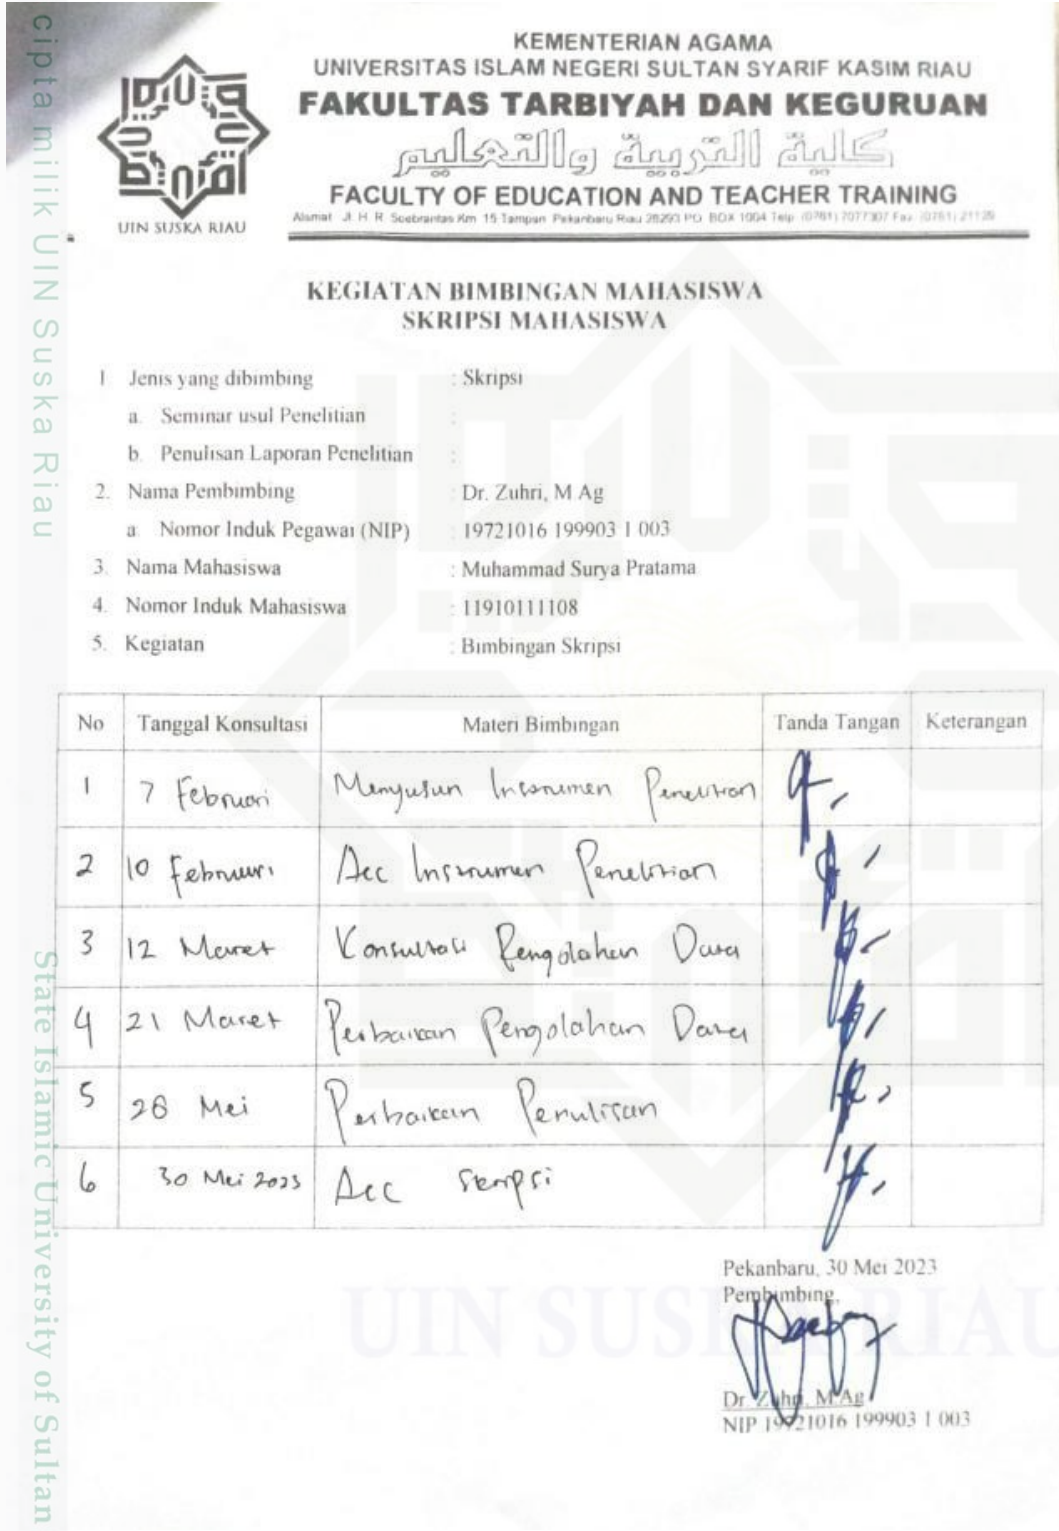 KEMENTERIAN AGAMA
UNIVERSITAS ISLAM NEGERI SULTAN SYARIF KASIM RIAU
FAKULTAS TARBIYAH DAN KEGURUAN
كلية التربية والتعليم
FACULTY OF EDUCATION AND TEACHER TRAINING
Alamat Jl. H. R. Soebrantas Km 15 Tampan Pekanbaru Riau 28293 PO. BOX 1004 Telp. (0761) 7077307 Fax. (0761) 21129
UIN SUSKA RIAU
KEGIATAN BIMBINGAN MAHASISWA
SKRIPSI MAHASISWA
1 Jenis yang dibimbing : Skripsi
a. Seminar usul Penelitian :
b. Penulisan Laporan Penelitian :
2. Nama Pembimbing : Dr. Zuhri, M Ag
a. Nomor Induk Pegawai (NIP) : 19721016 199903 1 003
3. Nama Mahasiswa : Muhammad Surya Pratama
4. Nomor Induk Mahasiswa : 11910111108
5. Kegiatan : Bimbingan Skripsi
No Tanggal Konsultasi Materi Bimbingan Tanda Tangan Keterangan
1 7 Februari Menyusun Instrumen Penelitian
2 10 Februari Acc Instrumen Penelitian
3 12 Maret Konsultasi Pengolahan Data
4 21 Maret Perbaikan Pengolahan Data
5 28 Mei Perbaikan Penulisan
6 30 Mei 2023 Acc Skripsi
Pekanbaru, 30 Mei 2023
Pembimbing,
Dr. Zuhri, M.Ag
NIP 19721016 199903 1 003
cipta milik UIN Suska Riau
State Islamic University of Sultan
UIN SUSKA RIAU